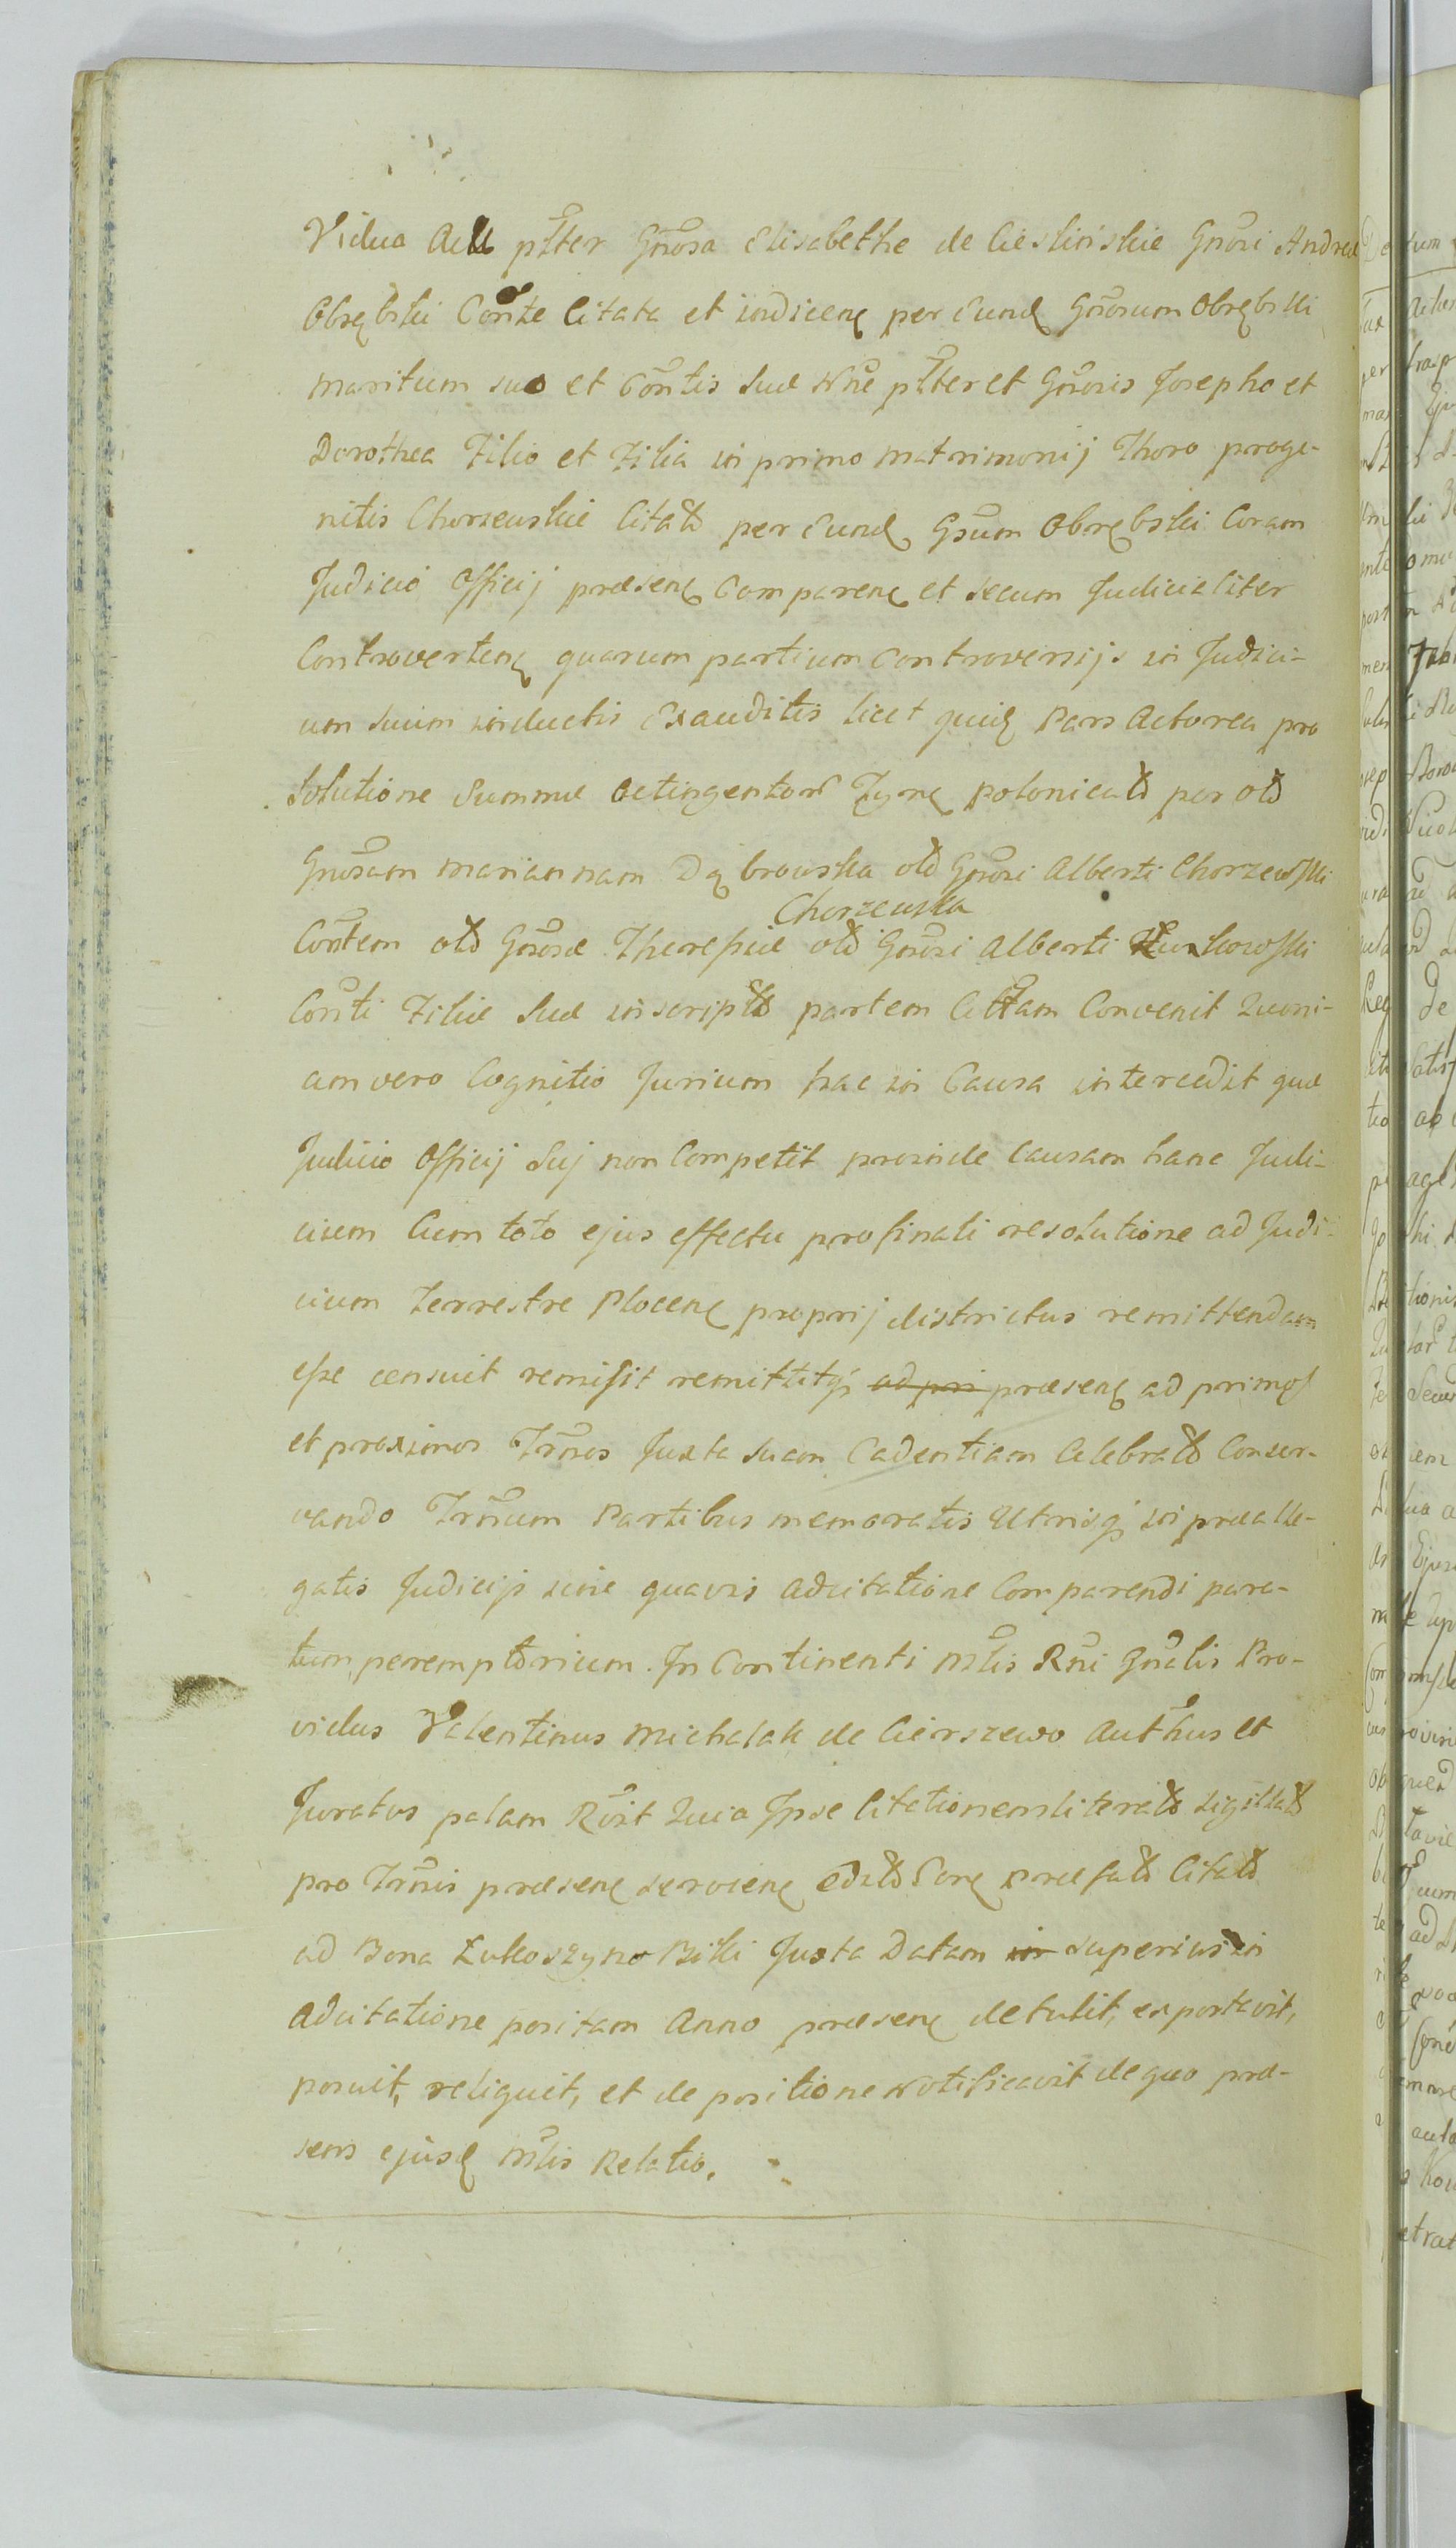 Vidua Act ptter Gnosa Elisabethe de Cieslinskie Gnosi Andreæ
Obrębski Conte Citata et indicenę per Eund Gnosum Obrębski
maritum suo et Contis suæ Nne ptter et Gnosis Josepho et
Dorothea Filio et Filia in primo matrimonij Thoro proge-
nitis Chorzewskie Citatt per Eund Gsum Obrębski Coram
Judicio Officij præsenę Comparenę et secum Judicialiter
Controvertenę quarum partium Controversijs in Judici-
um suum inductis Exauditis licet quidę Pars Actorea pro
Solutione Summæ Octingentorr Flynę polonicatt per ott
Gnosam Mariannam Dąbrowska olt Gnosi Alberti Chorzewski
Chorzewska
Contem ott Gnosæ Theresiæ olt Gnosi Alberti Kurkowski
Conti Filiæ suæ inscriptt partem Cittam Convenit Quoni-
am vero Cognitio Jurium hac in Causa intercedit quæ
Judicio Officij Suj non Competit proinde Causam hanc Judi-
cium Cum toto ejus effectu pro finali resolutione ad Judi-
cium terrestre Plocenę proprij districtus remittendam
esse censuit remisit remittitq ad pri præsenę ad primos
et proximos Trnos Juxta suam Cadentiam Celebratt Conser-
vando Trnum Partibus memoratis Utrisq in prealle-
gatis Judicijs sine quavis adcitatione Comparendi para-
tum peremptorium. In Continenti Mtis Rni Gnalis Pro-
vidus Valentinus Michalak de Cierszewo Authus et
Juratus palam Rvit Quia Ipse Citationem literatt sigillatt
pro Trnis præsenę servienę Editt Corę præfatt Citatt
ad Bona Łukoszyno Biki Juxta Datam in superius in
adcitatione positam Anno præsenę detulit, exportavit,
posuit, reliquit, et de positione Notificavit de quo præ-
sens ejusd Mtis Relatio.